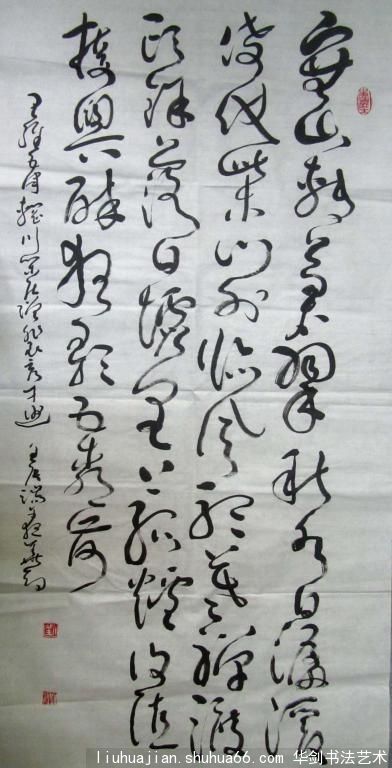 寒山轉蒼翠秋水日潺湲
倚杖柴门外临风聽暮蟬渡
頭餘落日墟里上孤煙復值
接輿醉狂歌五柳前
王維五律輞川閒居贈裴秀才迪
liuhuajian.shuhua66.com 华剑书法艺术